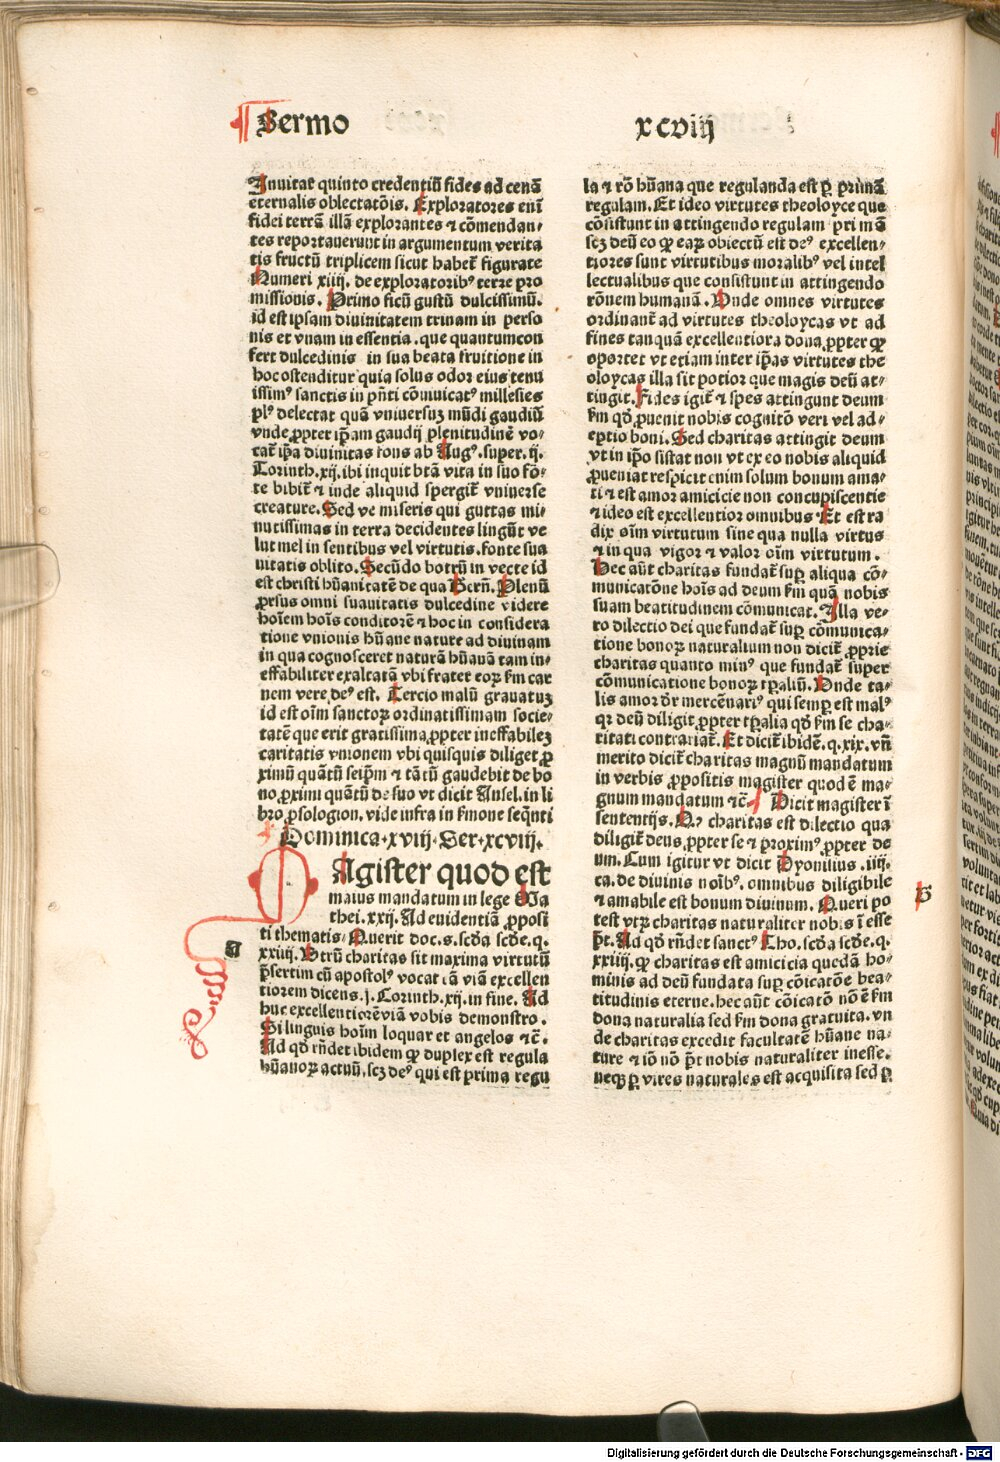 Sermo
xcviij
Inuitat quinto credentiū fides ad cenā
eternalis oblectatōis. Exploratores enī
fidei terrā illā explorantes ⁊ cōmendan⸗
tes reportauerunt in argumentum verita
tis fructū triplicem sicut habet᷑ figurate
Numeri xiiij. de exploratorib⁹ terre pro
missionis. Primo ficū gustū dulcissimū.
id est ipsam diuinitatem trinam in perso
nis et vnam in essentia. que quantumcon
fert dulcedinis in sua beata fruitione in
hoc ostenditur quia solus odor eius tenu
issim⁹ sanctis in pn̄ti cōmunicat⁹ millesies
pl⁹ delectat quā vniuersuꝫ mūdi gaudiū
vnde ꝓpter ip̄am gaudij plenitudinē vo⸗
cat᷑ ip̄a diuinitas fons ab Aug⁹. super. ij.
Corinth. xij. ibi inquit btā vita in suo fō⸗
te bibit᷑ ⁊ inde aliquid spergit᷑ vniuerse
creature. Sed ve miseris qui guttas mi⸗
nutissimas in terra decidentes lingūt ve
lut mel in sentibus vel virtutis. fonte sua
uitatis oblito. Secūdo botrū in vecte id
est christi hūanitatē de qua Bern̄. Plenū
ꝓrsus omni suauitatis dulcedine videre
hoīem hoīs conditorē ⁊ hoc in considera
tione vnionis hūane nature ad diuinam
in qua cognosceret naturā hūanā tam in⸗
effabiliter exaltatā vbi frater eoꝝ ẜm car
nem vere de⁹ est. Tercio malū granatuꝫ
id est oīm sanctoꝝ ordinatissimam socie⸗
tatē que erit gratissima ꝓpter ineffabileꝫ
caritatis vnionem vbi quisquis diliget ꝓ
ximū quātū seip̄m ⁊ tātū gaudebit de bo
no ꝓximi quātū de suo vt dicit Ansel. in li
bro ꝓsologion. vide infra in ẜmone seq̄nti
Dominica xviij. Ser. xcviij.
MAgister quod est
maius mandatum in lege Ma
thei. xxij. Ad euidentiā ꝓposi
ti thematis. Querit doc. s. scd̄a scd̄e. q.
A
xxiij. Vtrū charitas sit maxima virtutū
p̄sertim cū apostol⁹ vocat eā viā excellen
tiorem dicens. j. Corinth. xij. in fine. Ad
huc excellentiorē viā vobis demonstro.
Si linguis hoīm loquar et angelos ⁊c̄.
Ad qd̄ rn̄det ibidem ꝙ duplex est regula
hūanoꝝ actuū. scꝫ de⁹ qui est prima regu
la ⁊ rō hūana que regulanda est ꝑ primā
regulam. Et ideo virtutes theoloyce que
cōsistunt in attingendo regulam primā
scꝫ deū eo ꝙ eaꝝ obiectū est de⁹ excellen⸗
tiores sunt virtutibus moralib⁹ vel intel
lectualibus que consistunt in attingendo
rōnem humanā. Unde omnes virtutes
ordinant᷑ ad virtutes theoloycas vt ad
fines tanquā excellentiora dona ꝓpter ꝙ
oportet vt etiam inter ip̄as virtutes the
oloycas illa sit potior que magis deū at⸗
tingit. Fides igit᷑ ⁊ spes attingunt deum
ẜm qd̄ ꝓuenit nobis cognitō veri vel ad⸗
eptio boni. Sed charitas attingit deum
vt in ip̄o sistat non vt ex eo nobis aliquid
ꝓueniat respicit enim solum bonum ama⸗
ti ⁊ est amor amicicie non concupiscentie
⁊ ideo est excellentior omnibus Et est ra
dix oīm virtutum sine qua nulla virtus
⁊ in qua vigor ⁊ valor oīm virtutum.
Hec aūt charitas fundat᷑ suꝑ aliqua cō⸗
municatōne hoīs ad deum ẜm quā nobis
suam beatitudinem cōmunicat. Illa ve⸗
ro dilectio dei que fundat᷑ suꝑ cōmunica⸗
tione bonoꝝ naturalium non dicit᷑ ꝓprie
charitas quanto min⁹ que fundat᷑ super
cōmunicatione bonoꝝ tꝑaliū. Unde ta⸗
lis amor dr̄ mercēnari⁹ qui semꝑ est mal⁹
qꝛ deū diligit ꝓpter tꝑalia qd̄ ẜm se cha⸗
ritati contrariat᷑. Et dicit᷑ ibidē. q. xix. vn̄
merito dicit᷑ charitas magnū mandatum
in verbis ꝓpositis magister quod ē ma⸗
gnum mandatum ⁊c̄. Dicit magister ī
sententijs. Qꝫ charitas est dilectio qua
diligit᷑ deus ꝓpter se ⁊ proxim⁹ ꝓpter de
um. Cum igitur vt dicit Dyonisius. iiij.
ca. de diuinis noīb⁹. omnibus diligibile
⁊ amabile est bonum diuinum. Queri po
B
test vtꝝ charitas naturaliter nobis ī esse
p̄t. Ad qd̄ rn̄det sanct⁹ Tho. scd̄a scd̄e. q.
xxiiij. ꝙ charitas est amicicia quedā ho⸗
minis ad deū fundata suꝑ cōicatōe bea⸗
titudinis eterne. hec aūt cōicatō nō ē ẜm
dona naturalia sed ẜm dona gratuita. vn
de charitas excedit facultatē hūane na⸗
ture ⁊ iō nō p̄t nobis naturaliter inesse.
neqꝫ ꝑ vires naturales est acquisita sed ꝑ
Digitalisierung gefördert durch die Deutsche Forschungsgemeinschaft - DFG